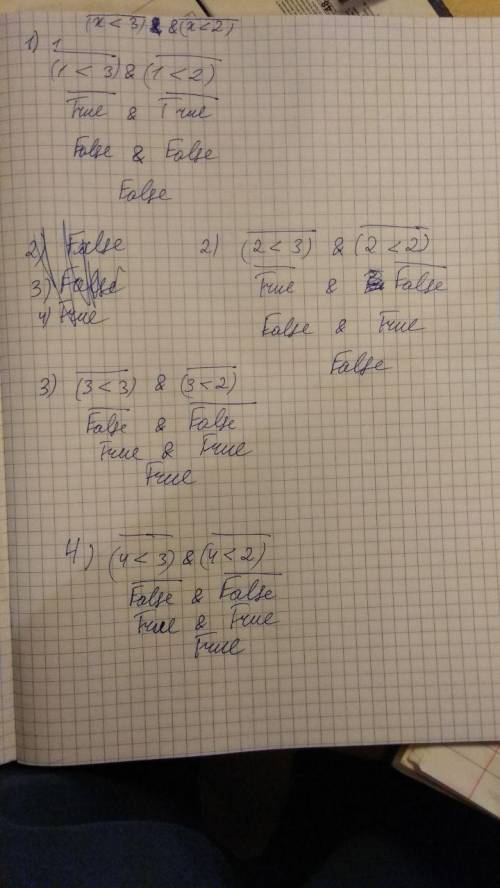 (x < 3) & (x < 2)
1) 1
(1 < 3) & (1 < 2)
True & True
False & False
False
2) False
3) False
4) True
2) (2 < 3) & (2 < 2)
True & False
False & True
False
3) (3 < 3) & (3 < 2)
False & False
True & True
True
4) (4 < 3) & (4 < 2)
False & False
True & True
True